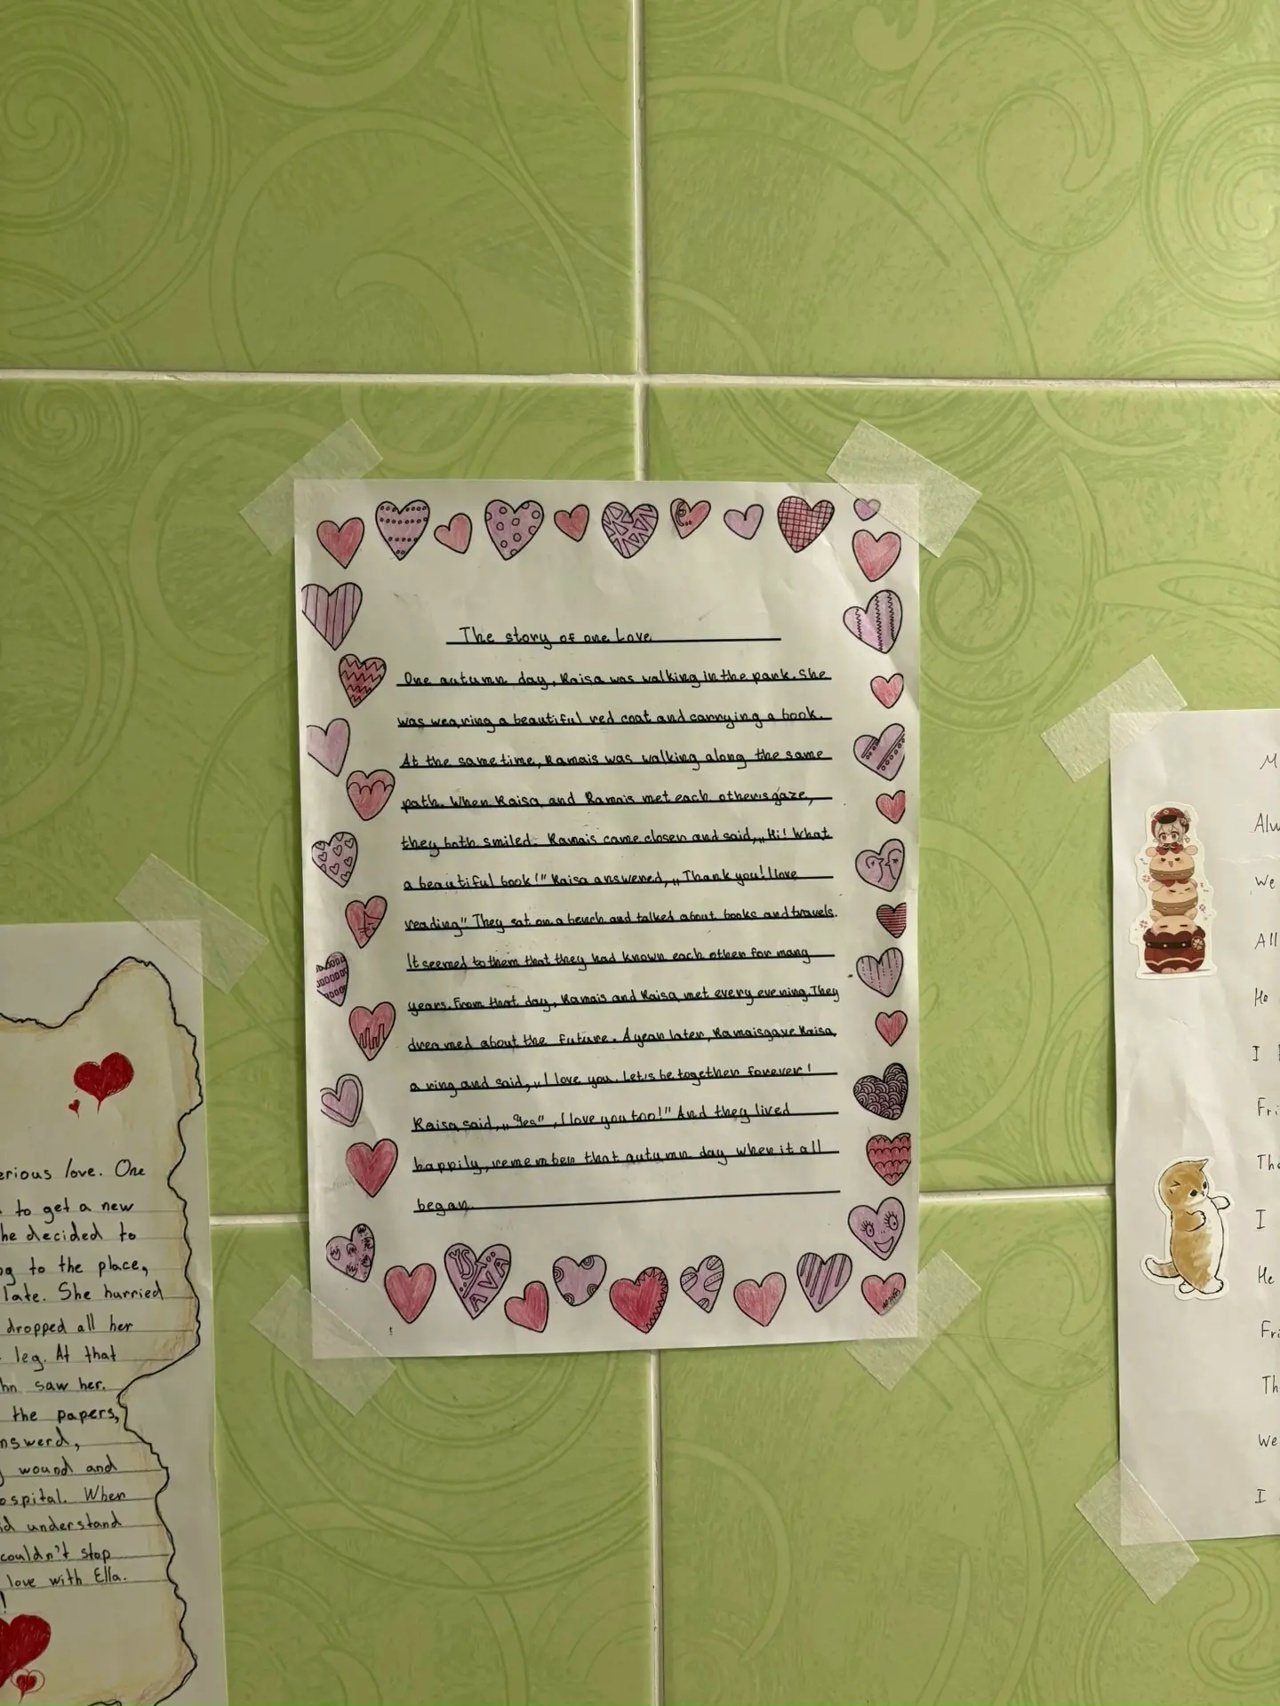 The story of one Love
One autumn day, Raisa was walking in the park. She
was wearing a beautiful red coat and carrying a book.
At the same time, Ramais was walking along the same
path. When Raisa and Ramais met each other's gaze,
they both smiled. Ramais came closer and said, „Hi! What
a beautiful book!" Raisa answered, „Thank you! I love
reading" They sat on a bench and talked about books and travels.
It seemed to them that they had known each other for many
years. From that day, Ramais and Raisa met every evening. They
dreamed about the future. A year later, Ramais gave Raisa
a ring and said, „I love you. Let's be together forever!
Raisa said, „Yes", „I love you too!" And they lived
happily, remember that autumn day when it all
began.
erious love. One
to get a new
he decided to
g to the place,
late. She hurried
dropped all her
leg. At that
hn saw her.
the papers,
nswerd,
wound and
ospital. When
id understand
couldn't stop
love with Ella.
!
M
Alw
We
All
He
I
Fri
Tha
I
He
Fri
Th
We
I